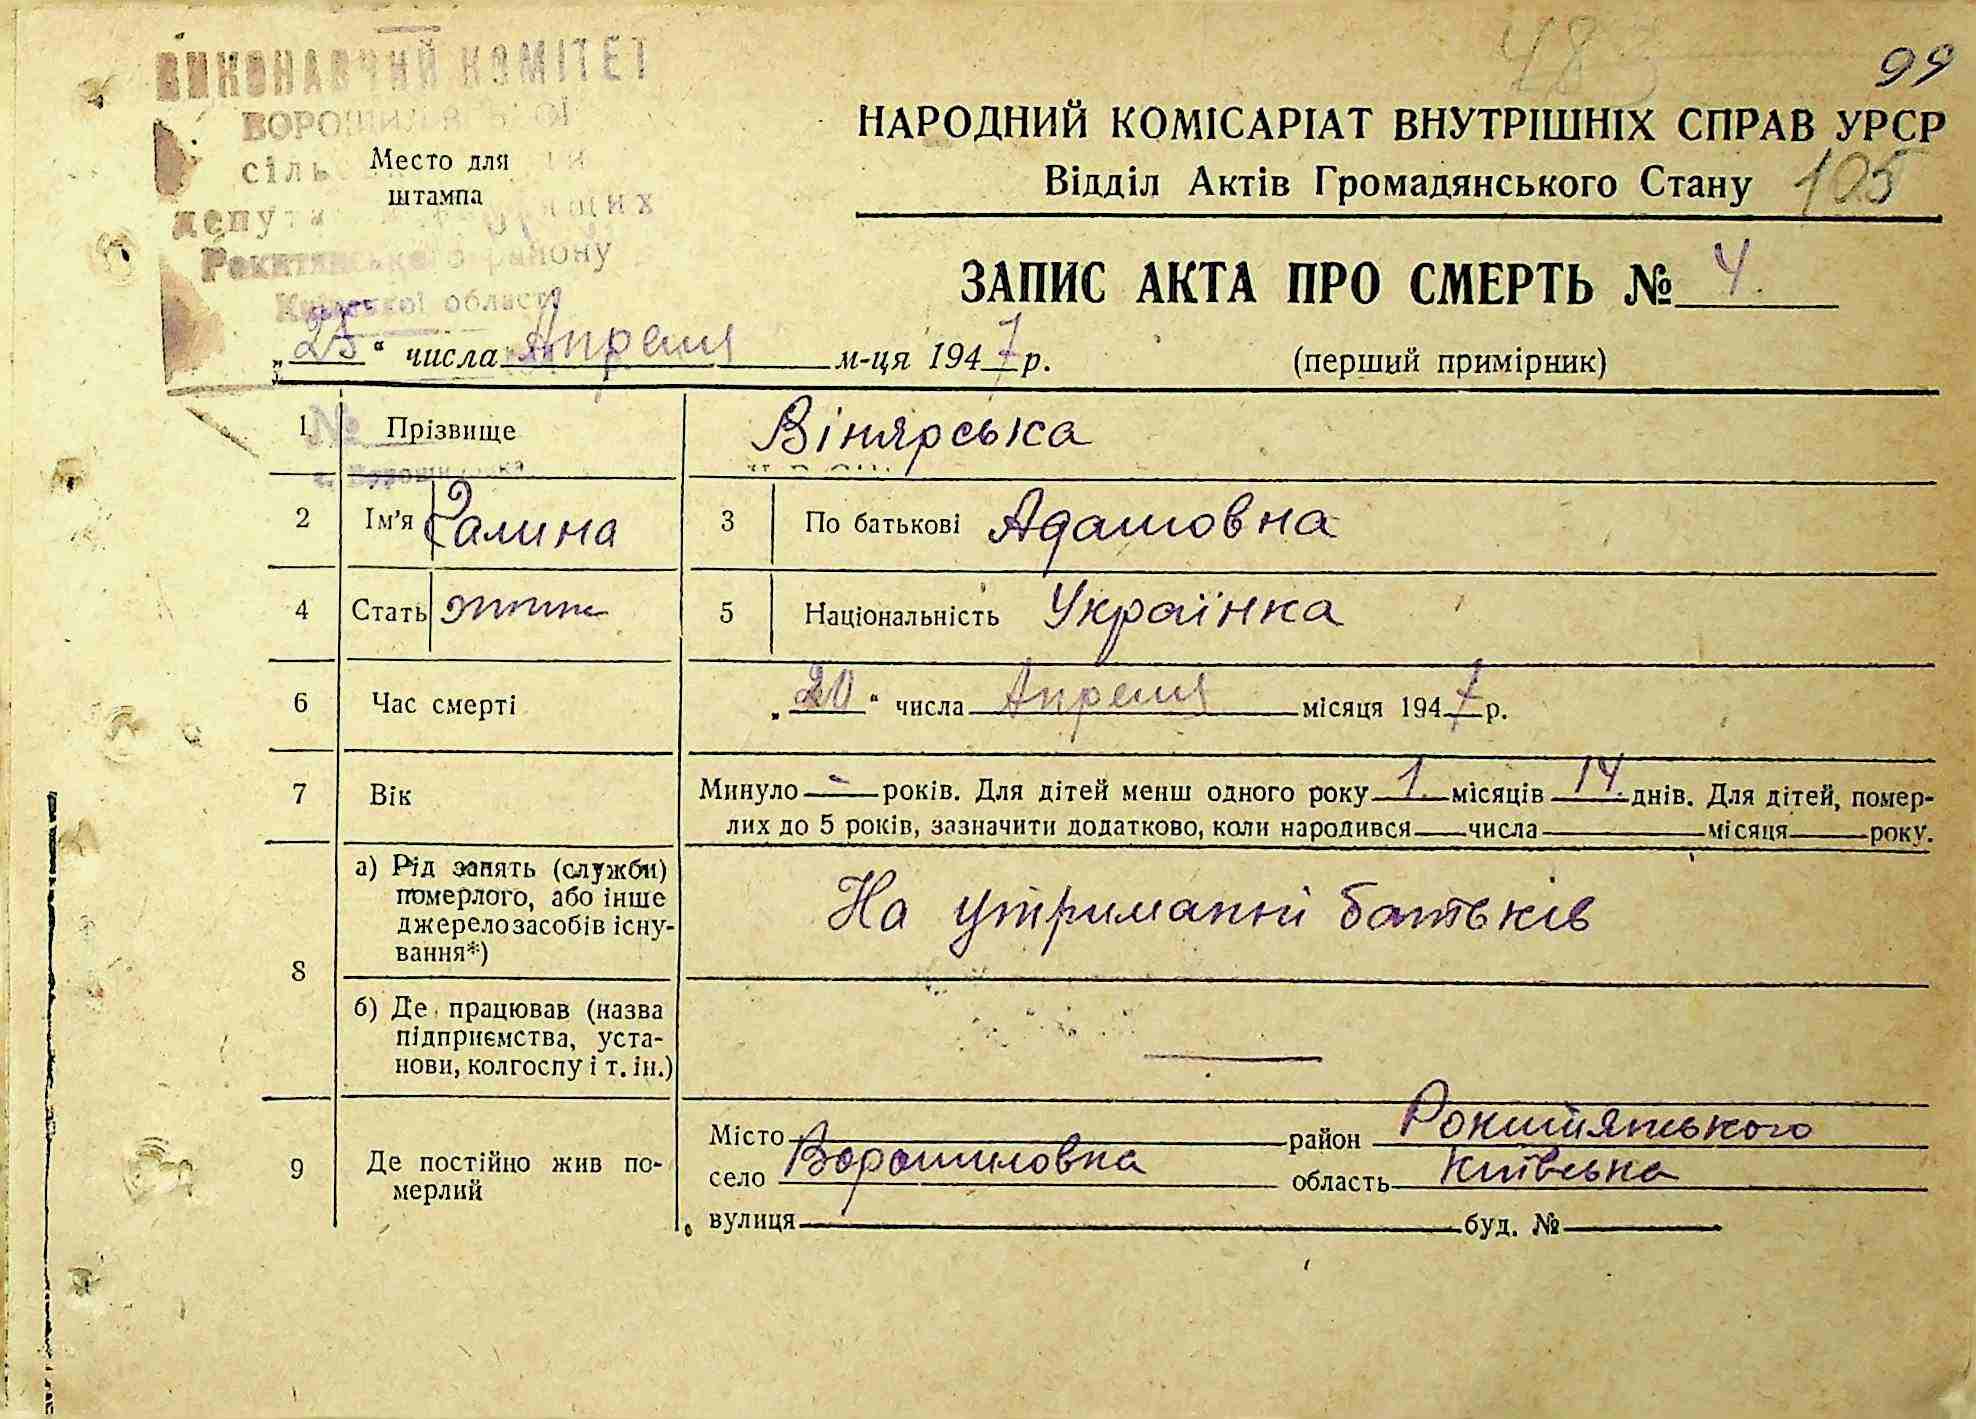 483
99
ВИКОНАВЧИЙ КОМІТЕТ
НАРОДНИЙ КОМІСАРІАТ ВНУТРІШНІХ СПРАВ УРСР
Место для
штампа
Відділ Актів Громадянського Стану 105
Рокитянського району
Київської області
ЗАПИС АКТА ПРО СМЕРТЬ № 4.
„25“ числа Апреля м-ця 1947 р.
(перший примірник)
1 Прізвище Вінярська
2 Ім'я Галина 3 По батькові Адамовна
4 Стать 5 Національність Українка
6 Час смерті „20“ числа Апреля місяця 1947 р.
7 Вік Минуло — років. Для дітей менш одного року 1. місяців 14. днів. Для дітей, помер-
лих до 5 років, зазначити додатково, коли народився числа місяця року.
8 а) Рід занять (служби)
померлого, або інше
джерело засобів існу-
вання*)
На утриманні батьків
б) Де працював (назва
підприємства, уста-
нови, колгоспу і т. ін.)
—
9 Де постійно жив по-
мерлий
Місто район Рокитянського
село Ворошиловка область Київська
вулиця буд. №